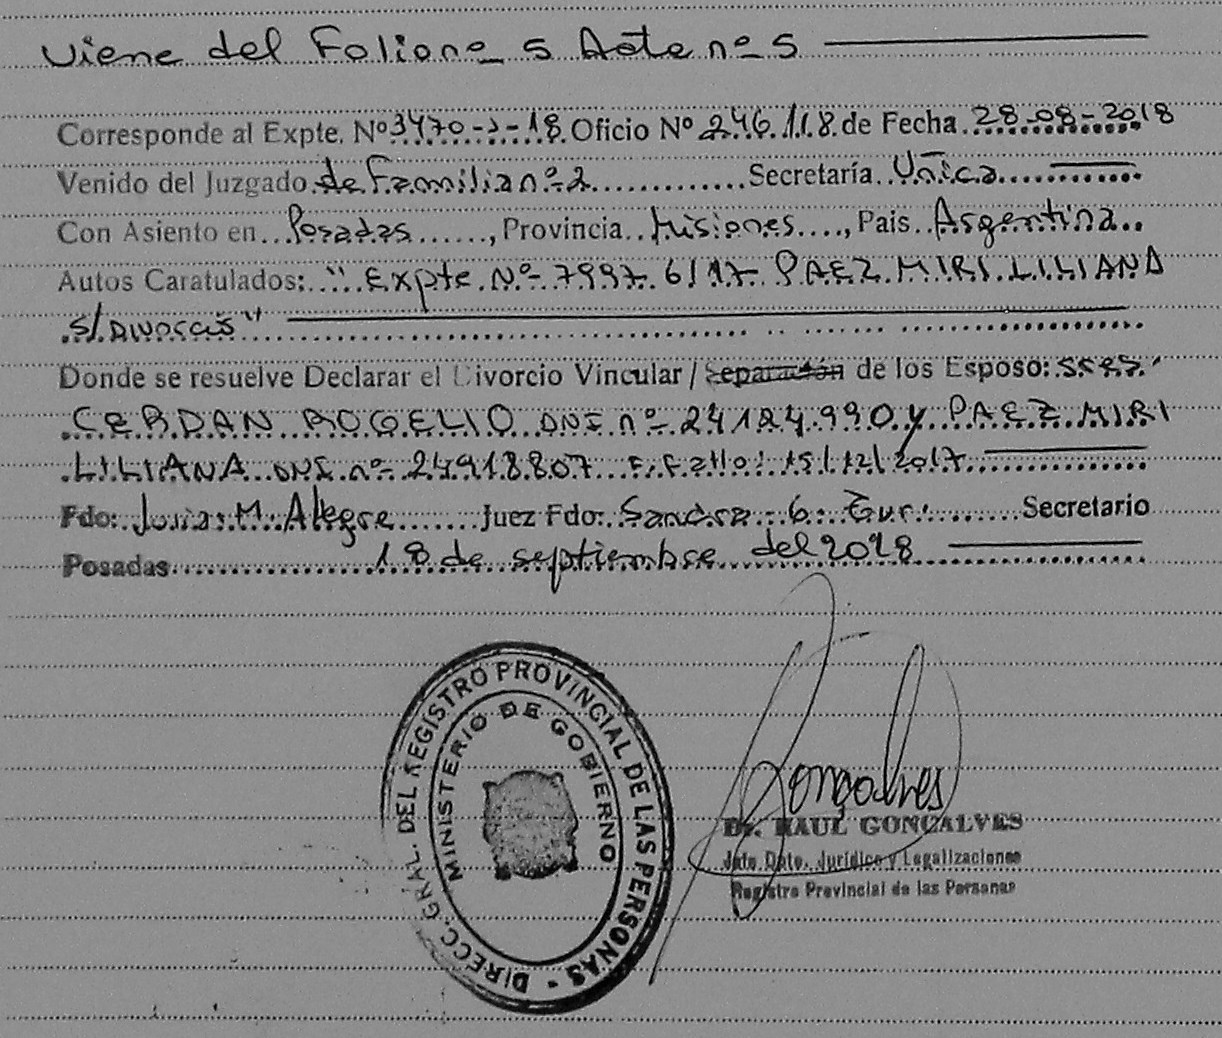 Viene del Folio nº 5 Acta nº 5
Corresponde al Expte. Nº 3470-J-18 Oficio Nº 246/18 de Fecha 28-08-2018
Venido del Juzgado de Familia nº 2 Secretaría Única
Con Asiento en Posadas, Provincia Misiones, Pais Argentina
Autos Caratulados: "Expte Nº 7997 6/17 PAEZ MIRI LILIANA
s/Divorcio"
Donde se resuelve Declarar el Divorcio Vincular / Separación de los Esposo: Sres.
CERDAN ROGELIO DNI nº 24124990 y PAEZ MIRI
LILIANA DNI nº 24918807 F. Fallo: 15/12/2017
Fdo: M. Alegre Juez Fdo: Sandra G. Secretario
Posadas 18 de septiembre del 2018
DIRECC. GRAL. DEL REGISTRO PROVINCIAL DE LAS PERSONAS -
MINISTERIO DE GOBIERNO
Goncalves
Dr. RAUL GONCALVES
Jefe Dpto. Jurídico y Legalizaciones
Registro Provincial de las Personas